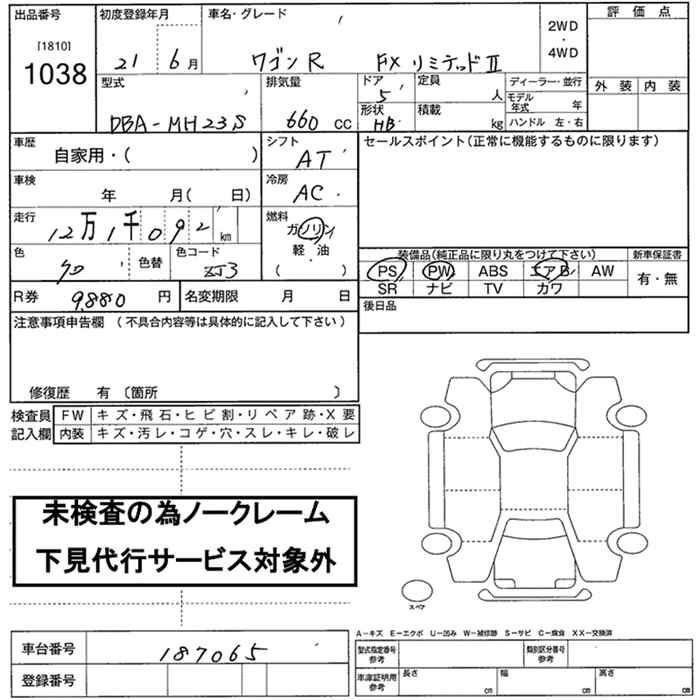 出品番号 初度登録年月 車名・グレード 評価点
[1810]
1038
21 6月 ワゴンR FX リミテッドII
2WD
・
4WD
型式 排気量 ドア 定員 ディーラー・並行 外装 内装
DBA-MH23S 660cc 5 人 モデル年式 年
形状 積載 ハンドル 左・右
HB kg
車歴 シフト セールスポイント(正常に機能するものに限ります)
自家用・( ) AT
車検 冷房
年 月( 日) AC
走行 燃料
12万1千092km ガソリン
軽・油
( )
色 色替 色コード 装備品(純正品に限り丸をつけて下さい) 新車保証書
クロ ZJ3 PS PW ABS エアB AW 有・無
SR ナビ TV カワ
R券 9,880円 名変期限 月 日 後日品
注意事項申告欄 (不具合内容等は具体的に記入して下さい)
修復歴 有 〔箇所 〕
検査員 FW キズ・飛石・ヒビ割・リペア跡・X要
記入欄 内装 キズ・汚レ・コゲ・穴・スレ・キレ・破レ
未検査の為ノークレーム
下見代行サービス対象外
スペア
A-キズ E-エクボ U-凹み W-補修跡 S-サビ C-腐食 XX-交換済
車台番号 187065 型式指定番号 参考 類別区分番号 参考
登録番号 車庫証明用 参考 長さ cm 幅 cm 高さ cm